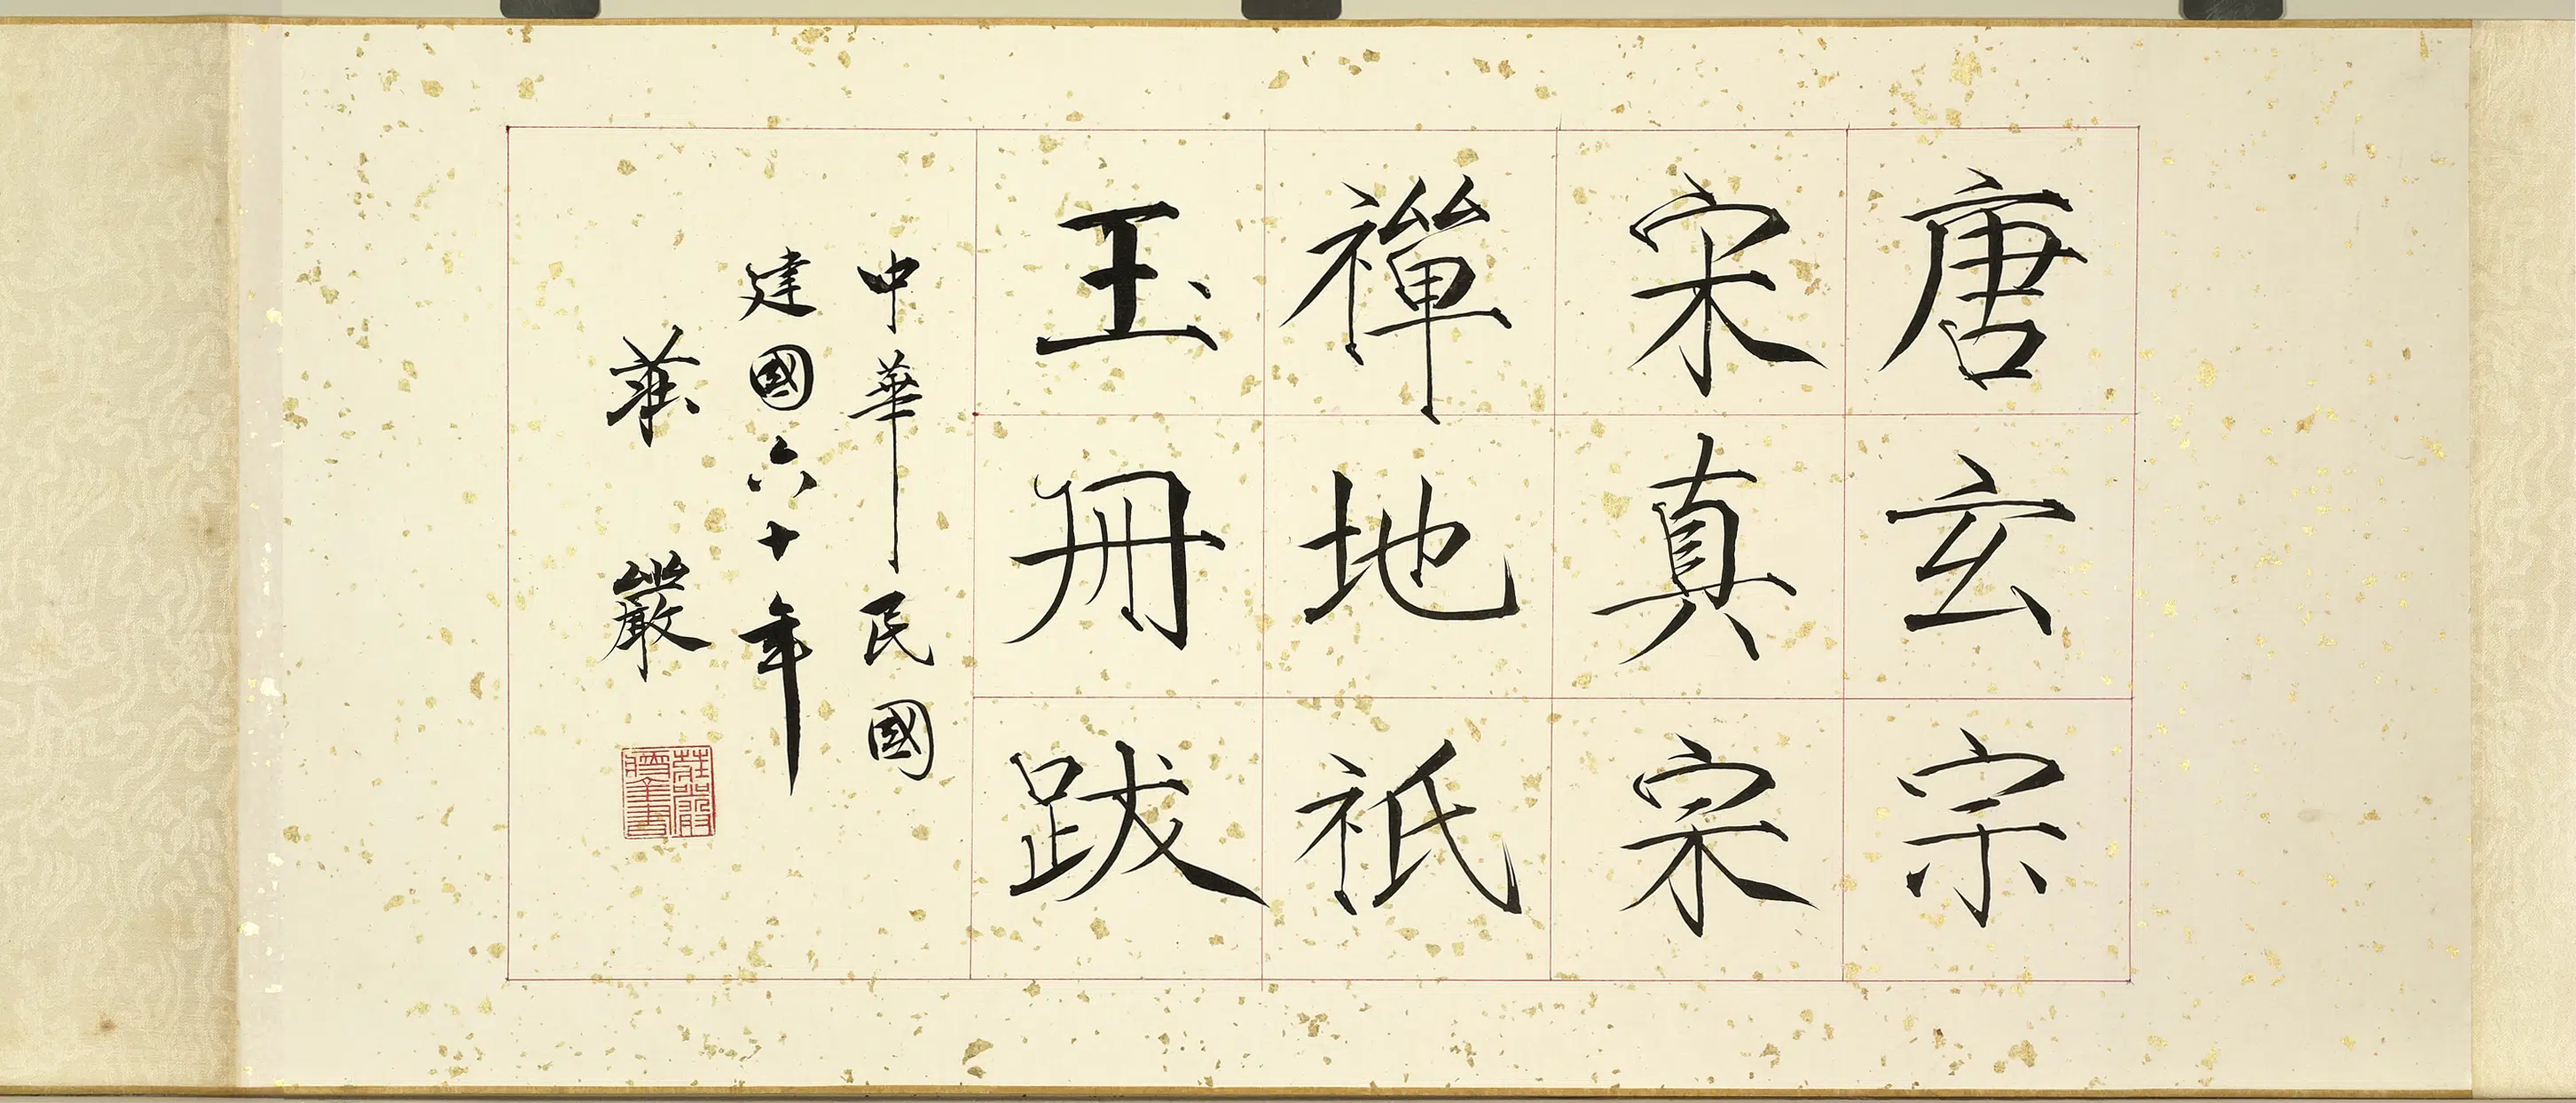 唐玄宗
宋真宗
禪地祇
玉冊跋
中華民國
建國六十年
莊嚴
莊嚴瘦金書